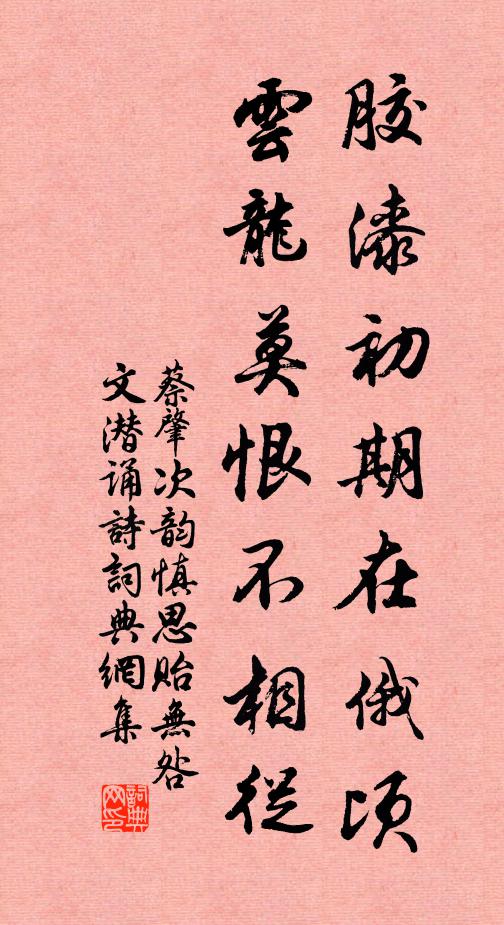 膠漆初期在俄頃
雲龍莫恨不相從
蔡肇次韵慎思貽無咎
文潜誦詩詞典網集
詞典网印